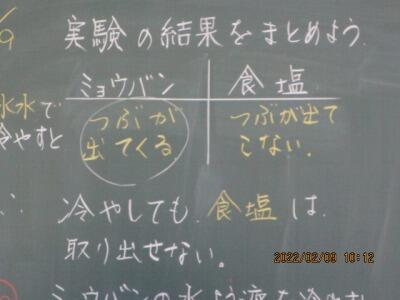 /9 実験の結果をまとめよう.
ミョウバン 食塩
氷水で
冷やすと
つぶが
出てくる.
つぶが出て
こない.
∴ 冷やしても, 食塩は
取り出せない。
2022/02/09 10:12
ミョウバンの水溶液を冷やす